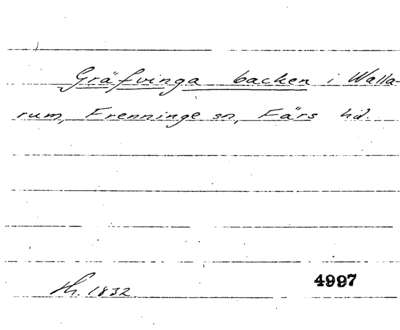 Gräfvinga backen i Walla-
rum, Frenninge sn, Färs hd.
Th. 1832
4997